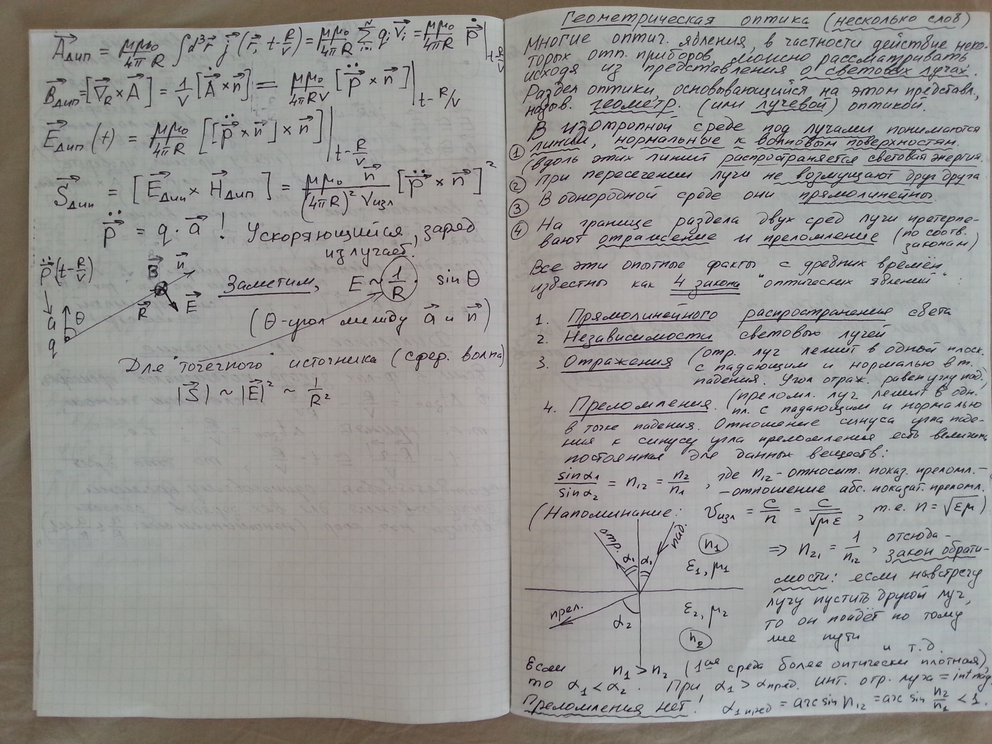 A⃗дип = μμ₀/4πR ∫d³r⃗ j⃗(r⃗, t-R/v) = μμ₀/4πR Σ qᵢ v⃗ᵢ = μμ₀/4πR ṗ⃗|t-R/v
B⃗дип = [∇⃗_R × A⃗] = 1/v [Ȧ⃗ × n⃗] = μμ₀/4πRv [p̈⃗ × n⃗]|t-R/v
E⃗дип (t) = μμ₀/4πR [[p̈⃗ × n⃗] × n⃗]|t-R/v
S⃗дип = [E⃗дип × H⃗дип] = μμ₀ n⃗/(4πR)² vизл [p̈⃗ × n⃗]²
p̈⃗ = q · a⃗ ! Ускоряющийся заряд
излучает.
p̈⃗(t-R/v) B⃗ n⃗
Заметим, E ~ 1/R · sin θ
a⃗ θ R⃗ E⃗
q
(θ-угол между a⃗ и n⃗)
Для "точечного" источника (сфер. волна)
|S⃗| ~ |E⃗|² ~ 1/R²
Геометрическая оптика (несколько слов)
Многие оптич. явления, в частности действие неко-
торых опт. приборов, можно рассматривать
исходя из представления о световых лучах.
Раздел оптики, основывающийся на этом представл.
назыв. геометр. (или лучевой) оптикой.
В изотропной среде под лучами понимаются
① линии, нормальные к волновым поверхностям.
(вдоль этих линий распространяется световая энергия.
② При пересечении лучи не возмущают друг друга
③ В однородной среде они прямолинейны
④ На границе раздела двух сред лучи претерпе-
вают отражение и преломление (по соотв. законам)
Все эти опытные факты "с древних времён"
известны как 4 закона "оптических явлений"
1. Прямолинейного распространения света
2. Независимости световых лучей
3. Отражения (отр. луч лежит в одной плоск.
с падающим и нормалью в т.
падения. Угол отраж. равен углу пад.
4. Преломления (преломл. луч лежит в одн.
пл. с падающим и нормалью
в точке падения. Отношение синуса угла паде-
ния к синусу угла преломления есть величина
постоянная для данных веществ:
sin α₁/sin α₂ = n₁₂ = n₂/n₁, где n₁₂-относит. показ. преломл.-
-отношение абс. показат. преломл.
(Напоминание: vизл = c/n = c/√με, т.е. n = √εμ)
отр. α₁ α₁ пад. n₁
ε₁, μ₁
прел. α₂ ε₂, μ₂
n₂
⇒ n₂₁ = 1/n₁₂, отсюда -
закон обрати-
мости: если навстречу
лучу пустить другой луч,
то он пойдёт по тому
же пути
и т.д.
Если n₁ > n₂ (1ая среда более оптически плотная)
то α₁ < α₂. При α₁ > αпред. инт. отр. луча = int пад.
Преломления нет! α₁пред = arcsin n₁₂ = arcsin n₂/n₁ < 1.